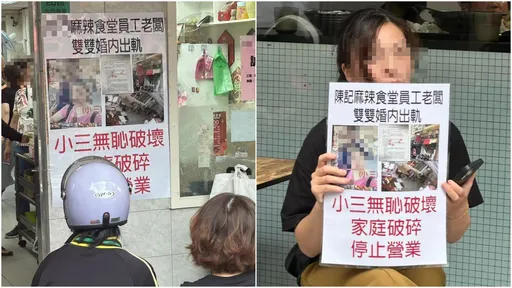 麻辣食堂員工老闆
雙雙婚內出軌
小三無恥破壞
庭破碎
止營業
陳記麻辣食堂員工老闆
雙雙婚內出軌
小三無恥破壞
家庭破碎
停止營業